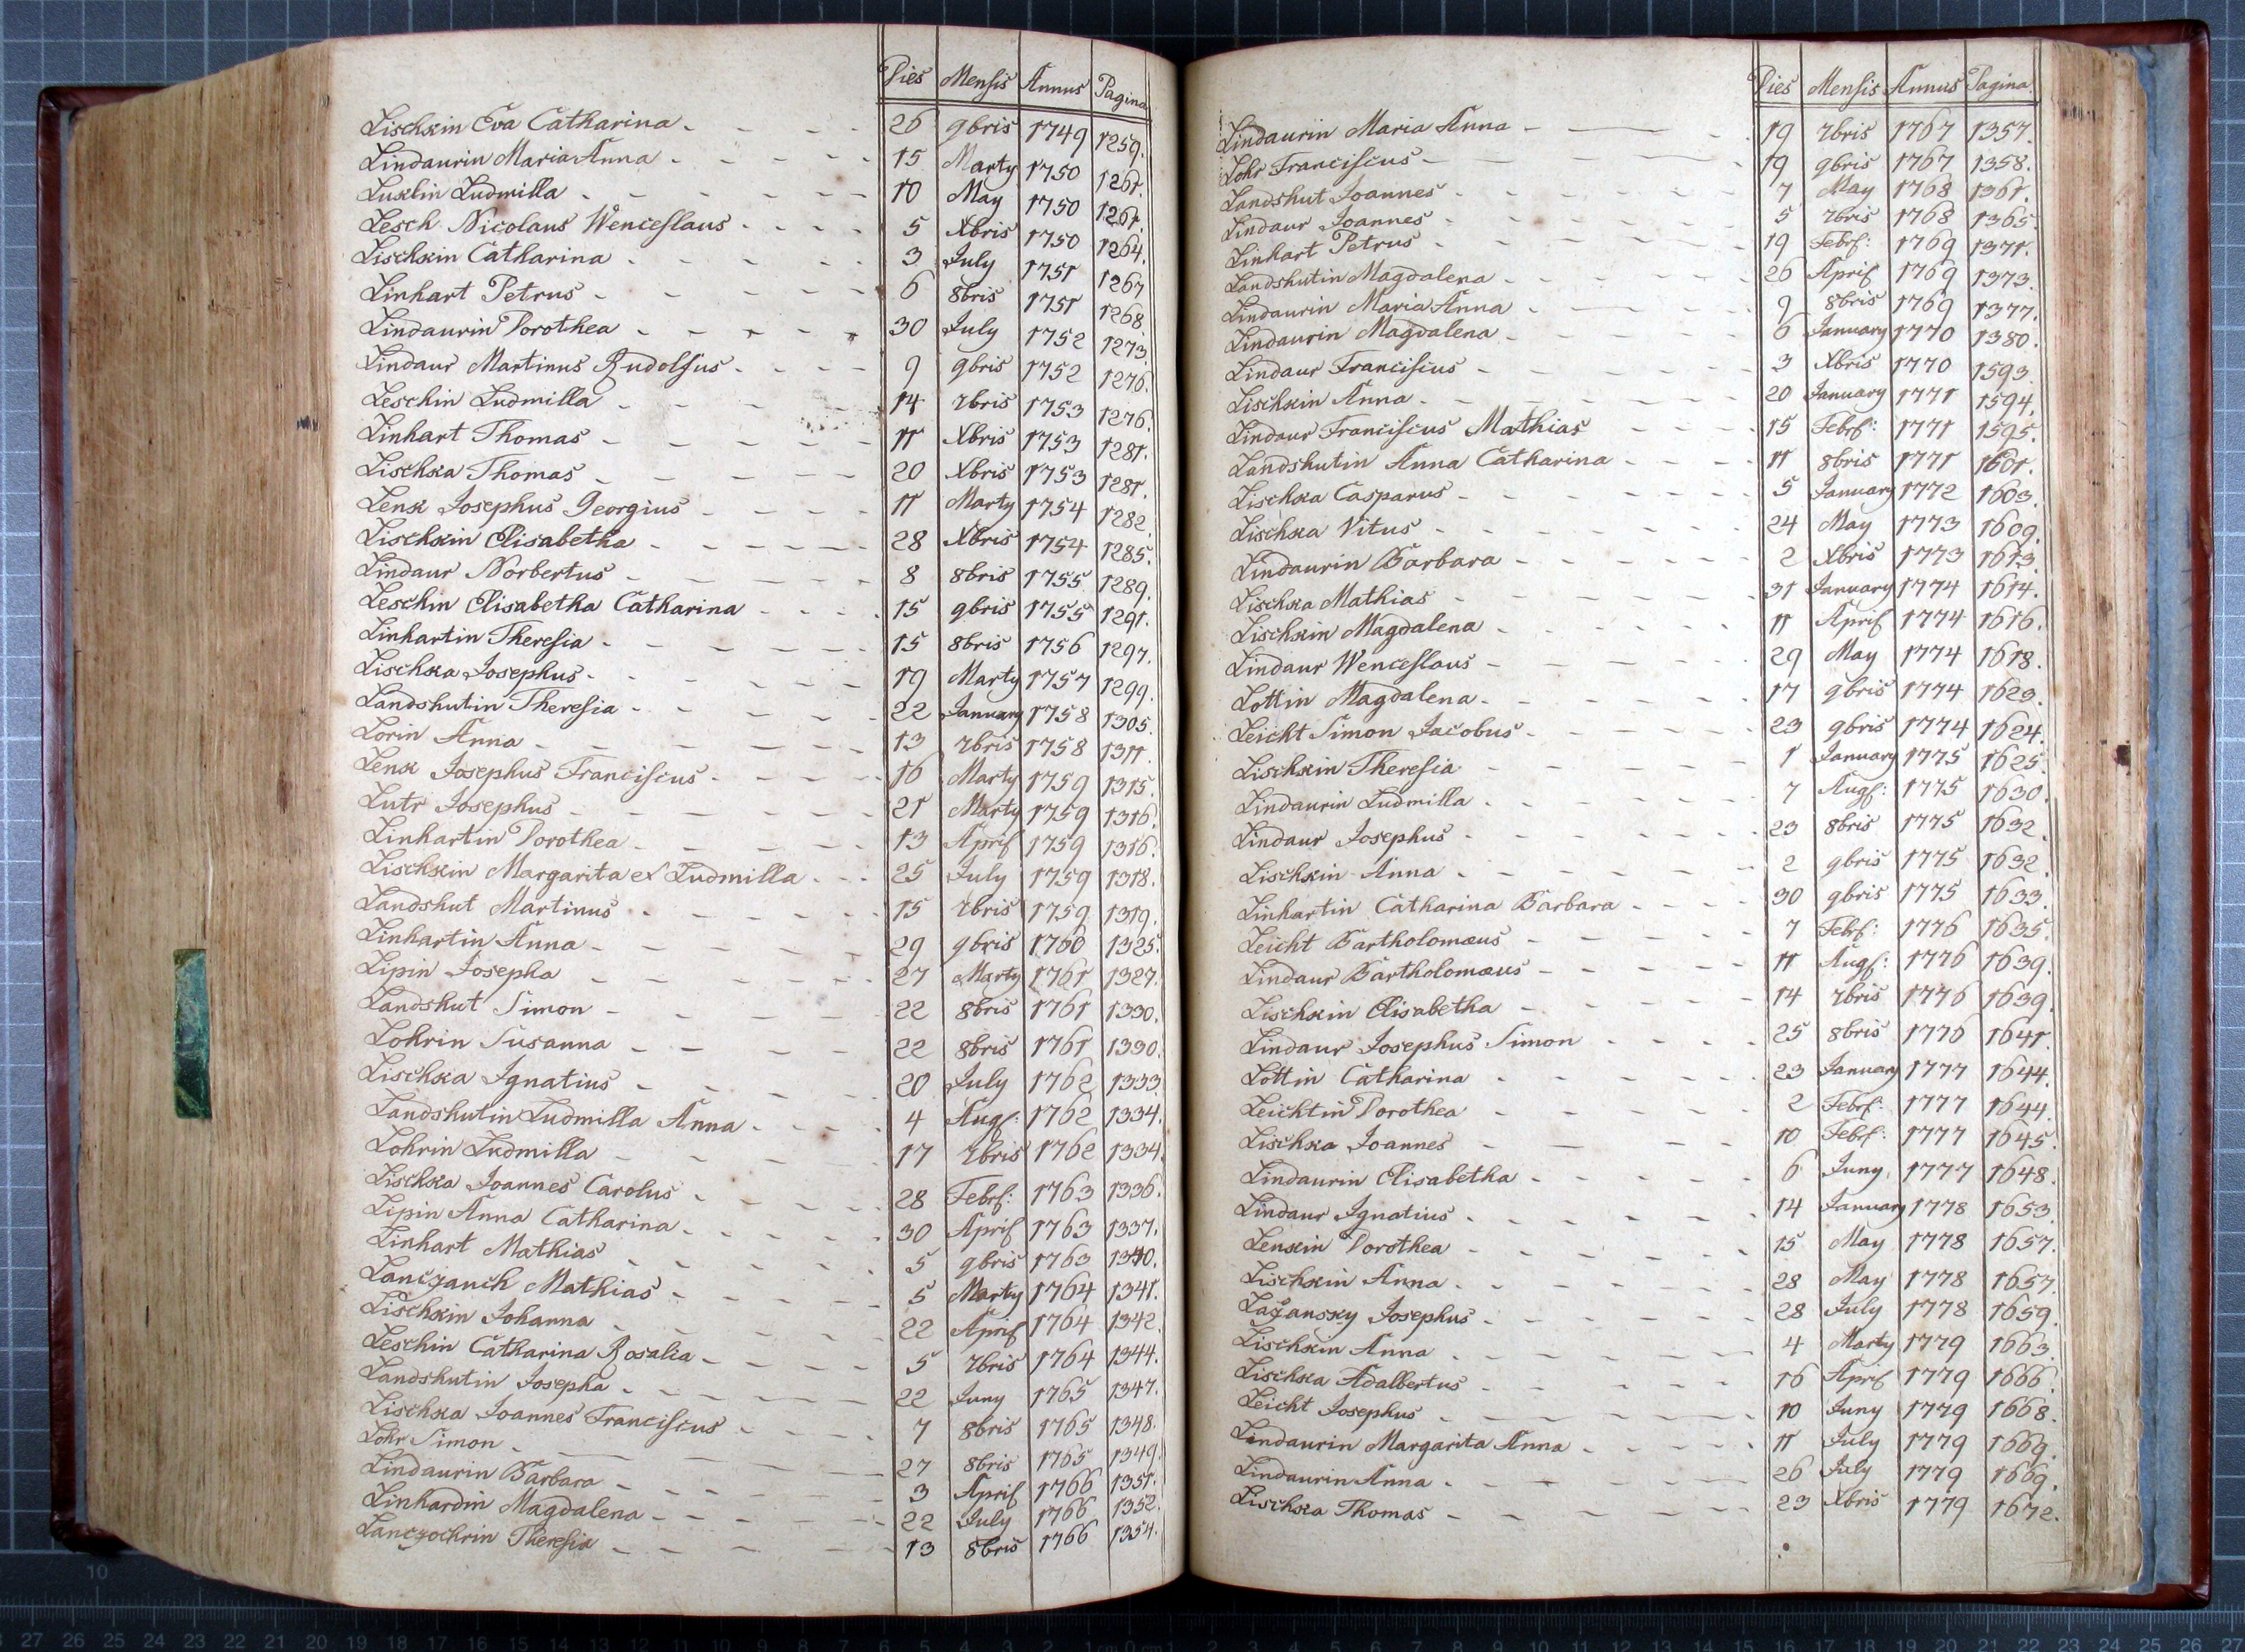 Dies Mensis Annus Pagina
Lischkin Eva Catharina 26 9bris 1749 1259.
Lindaurin Maria Anna 15 Marty 1750 1261.
Lusklin Ludmilla 10 May 1750 1261.
Lesch Nicolaus Wenceslaus 5 Xbris 1750 1264.
Lischkin Catharina 3 July 1751 1267
Linhart Petrus 6 8bris 1751 1268
Lindaurin Dorothea 30 July 1752 1273.
Lindaur Martinus Rudolfus 9 9bris 1752 1276.
Leschin Ludmilla 14 7bris 1753 1276.
Linhart Thomas 11 Xbris 1753 1281.
Lischka Thomas 20 Xbris 1753 1281.
Lenk Josephus Georgius 11 Marty 1754 1282
Lischkin Elisabetha 28 Xbris 1754 1285.
Lindaur Norbertus 8 8bris 1755 1289.
Leschin Elisabetha Catharina 15 9bris 1755 1291.
Linhartin Theresia 15 8bris 1756 1297.
Lischka Josephus 19 Marty 1757 1299.
Landshutin Theresia 22 January 1758 1305.
Lorin Anna 13 7bris 1758 1311.
Lenk Josephus Franciscus 16 Marty 1759 1315.
Lutr Josephus 21 Marty 1759 1316.
Linhartin Dorothea 13 April 1759 1316.
Lischkin Margarita et Ludmilla 25 July 1759 1318.
Landshut Martinus 15 7bris 1759 1319.
Linhartin Anna 29 9bris 1760 1325.
Lipin Josepha 27 Marty 1761 1327.
Landshut Simon 22 8bris 1761 1330.
Lohrin Susanna 22 8bris 1761 1330.
Lischka Ignatius 20 July 1762 1333
Landshutin Ludmilla Anna 4 Aug: 1762 1334.
Lohrin Ludmilla 17 7bris 1762 1334.
Lischka Joannes Carolus 28 Febr: 1763 1336.
Lipin Anna Catharina 30 April 1763 1337.
Linhart Mathias 5 9bris 1763 1340.
Lanczauch Mathias 5 Marty 1764 1341.
Lischkin Johanna 22 April 1764 1342
Leschin Catharina Rosalia 5 7bris 1764 1344.
Landshutin Josepha 22 Juny 1765 1347.
Lischka Joannes Franciscus 7 8bris 1765 1348.
Lohr Simon 27 8bris 1765 1349.
Lindaurin Barbara 3 April 1766 1351.
Linhardin Magdalena 22 July 1766 1352.
Lanczochrin Theresia 13 8bris 1766 1354.
Dies Mensis Annus Pagina.
Lindaurin Maria Anna 19 7bris 1767 1357.
Lohr Franciscus 19 9bris 1767 1358.
Landshut Joannes 7 May 1768 1361.
Lindaur Joannes 5 7bris 1768 1365.
Linhart Petrus 19 Febr: 1769 1371.
Landshutin Magdalena 26 April 1769 1373.
Lindaurin Maria Anna 9 8bris 1769 1377.
Lindaurin Magdalena 6 January 1770 1380.
Lindaur Franciscus 3 Xbris 1770 1593.
Lischkin Anna 20 January 1771 1594.
Lindaur Franciscus Mathias 15 Febr: 1771 1595.
Landshutin Anna Catharina 11 8bris 1771 1601.
Lischka Casparus 5 January 1772 1603.
Lischka Vitus 24 May 1773 1609.
Lindaurin Barbara 2 Xbris 1773 1613.
Lischka Mathias 31 January 1774 1614.
Lischkin Magdalena 11 April 1774 1616.
Lindaur Wenceslaus 29 May 1774 1618.
Lottin Magdalena 17 9bris 1774 1623.
Leicht Simon Jacobus 23 9bris 1774 1624.
Lischkin Theresia 1 January 1775 1625.
Lindaurin Ludmilla 7 Aug: 1775 1630.
Lindaur Josephus 23 8bris 1775 1632.
Lischkin Anna 2 9bris 1775 1632.
Linhartin Catharina Barbara 30 9bris 1775 1633.
Leicht Bartholomæus 7 Febr: 1776 1635.
Lindaur Bartholomæus 11 Aug: 1776 1639.
Lischkin Elisabetha 14 7bris 1776 1639.
Lindaur Josephus Simon 25 8bris 1776 1641.
Lottin Catharina 23 January 1777 1644.
Leichtin Dorothea 2 Febr: 1777 1644.
Lischka Joannes 10 Febr: 1777 1645.
Lindaurin Elisabetha 6 Juny 1777 1648.
Lindaur Ignatius 14 January 1778 1653.
Lenkin Dorothea 15 May 1778 1657.
Lischkin Anna 28 May 1778 1657.
Lažansky Josephus 28 July 1778 1659.
Lischkin Anna 4 Marty 1779 1663.
Lischka Adalbertus 16 April 1779 1666.
Leicht Josephus 10 Juny 1779 1668.
Lindaurin Margarita Anna 11 July 1779 1669.
Lindaurin Anna 26 July 1779 1669.
Lischka Thomas 23 Xbris 1779 1672.